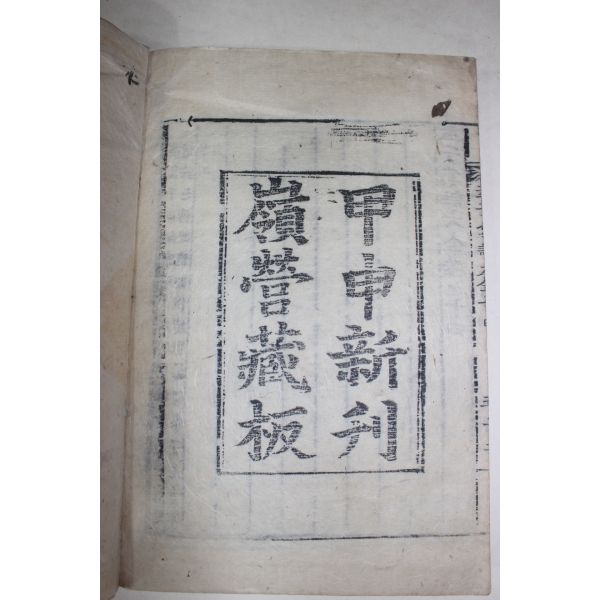 甲申新刊
嶺營藏板